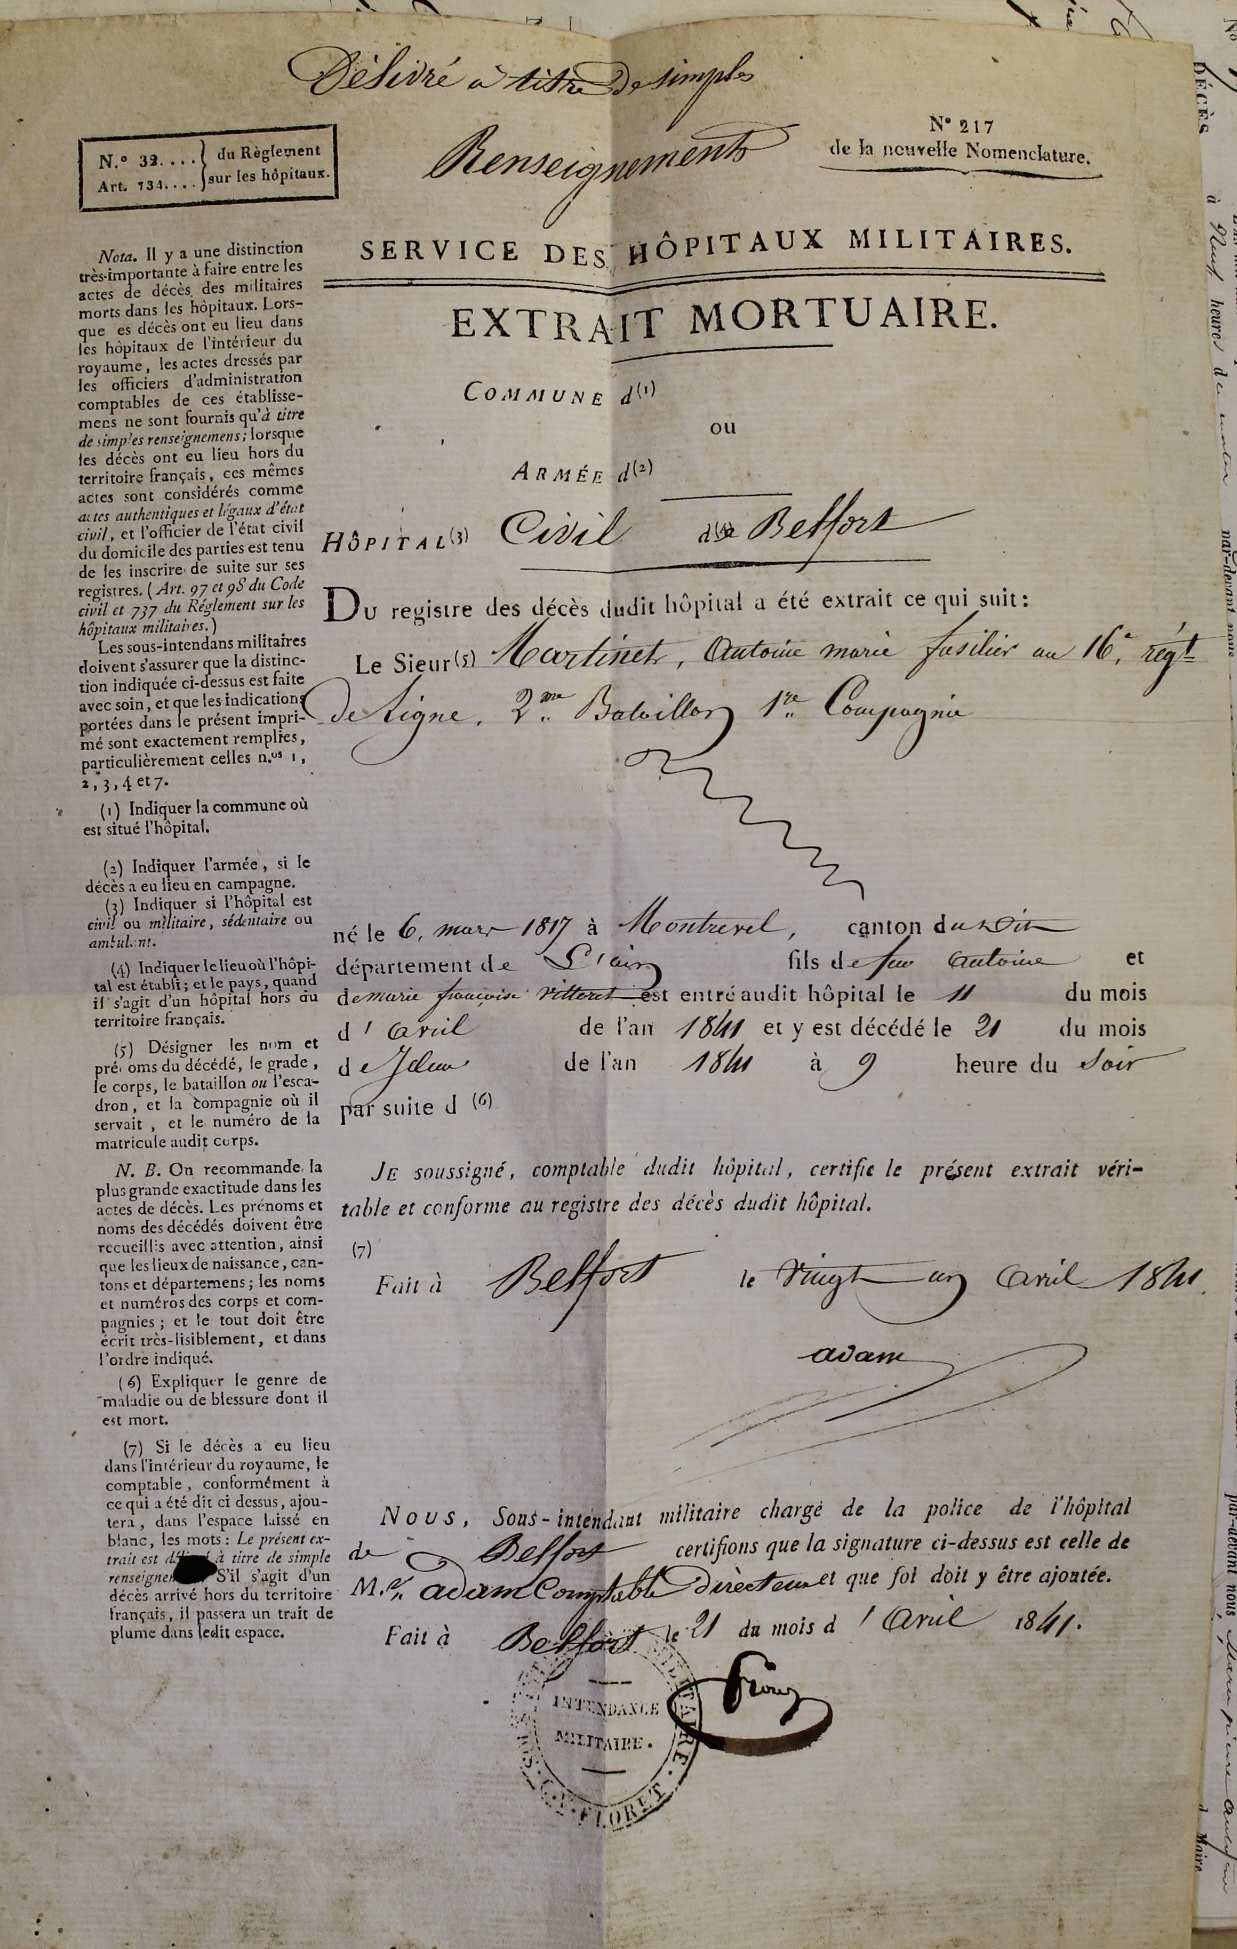 Délivré à titre de simples
Renseignements
N.° 32.... } du Règlement
Art. 734.... } sur les hôpitaux.
N° 217
de la nouvelle Nomenclature.
SERVICE DES HÔPITAUX MILITAIRES.
EXTRAIT MORTUAIRE.
COMMUNE d(1)
ou
ARMÉE d(2)
HÔPITAL(3) Civil d(4)e Belfort
DU registre des décès dudit hôpital a été extrait ce qui suit:
Le Sieur(5) Martinet, Antoine marie fusilier au 16e. régt
de Ligne, 2me Bataillon 1re Compagnie
né le 6, mars 1817 à Montrevel, canton du dit
département de L'ain fils de feu Antoine et
de marie françoise Vitteret est entré audit hôpital le 11 du mois
d'Avril de l'an 1841 et y est décédé le 21 du mois
de de l'an 1841 à 9 heure du Soir
par suite d (6)
JE soussigné, comptable dudit hôpital, certifie le présent extrait véri-
table et conforme au registre des décès dudit hôpital.
(7)
Fait à Belfort le Vingt un Avril 1841.
adam
NOUS, Sous-intendant militaire chargé de la police de l'hôpital
de Belfort certifions que la signature ci-dessus est celle de
M.r adam Comptable Directeur et que foi doit y être ajoutée.
Fait à Belfort le 21 du mois d'Avril 1841.
INTENDANCE
MILITAIRE.
C.Y. FLORET
Nota. Il y a une distinction
très-importante à faire entre les
actes de décès des militaires
morts dans les hôpitaux. Lors-
que es décès ont eu lieu dans
les hôpitaux de l'intérieur du
royaume, les actes dressés par
les officiers d'administration
comptables de ces établisse-
mens ne sont fournis qu'à titre
de simples renseignemens; lorsque
les décès ont eu lieu hors du
territoire français, ces mêmes
actes sont considérés comme
actes authentiques et légaux d'état
civil, et l'officier de l'état civil
du domicile des parties est tenu
de les inscrire de suite sur ses
registres. (Art. 97 et 98 du Code
civil et 737 du Réglement sur les
hôpitaux militaires.)
Les sous-intendans militaires
doivent s'assurer que la distinc-
tion indiquée ci-dessus est faite
avec soin, et que les indications
portées dans le présent impri-
mé sont exactement remplies,
particulièrement celles n.os 1,
2, 3, 4 et 7.
(1) Indiquer la commune où
est situé l'hôpital.
(2) Indiquer l'armée, si le
décès a eu lieu en campagne.
(3) Indiquer si l'hôpital est
civil ou militaire, sédentaire ou
ambulant.
(4) Indiquer le lieu où l'hôpi-
tal est établi; et le pays, quand
il s'agit d'un hôpital hors du
territoire français.
(5) Désigner les nom et
prénoms du décédé, le grade,
le corps, le bataillon ou l'esca-
dron, et la compagnie où il
servait, et le numéro de la
matricule audit corps.
N. B. On recommande la
plus grande exactitude dans les
actes de décès. Les prénoms et
noms des décédés doivent être
recueillis avec attention, ainsi
que les lieux de naissance, can-
tons et départemens; les noms
et numéros des corps et com-
pagnies; et le tout doit être
écrit très-lisiblement, et dans
l'ordre indiqué.
(6) Expliquer le genre de
maladie ou de blessure dont il
est mort.
(7) Si le décès a eu lieu
dans l'intérieur du royaume, le
comptable, conformément à
ce qui a été dit ci dessus, ajou-
tera, dans l'espace laissé en
blanc, les mots: Le présent ex-
trait est délivré à titre de simple
renseignement. S'il s'agit d'un
décès arrivé hors du territoire
français, il passera un trait de
plume dans ledit espace.
DÉCÈS
à Neuf heures du
par-devant nous
par-devant nous,
Maire